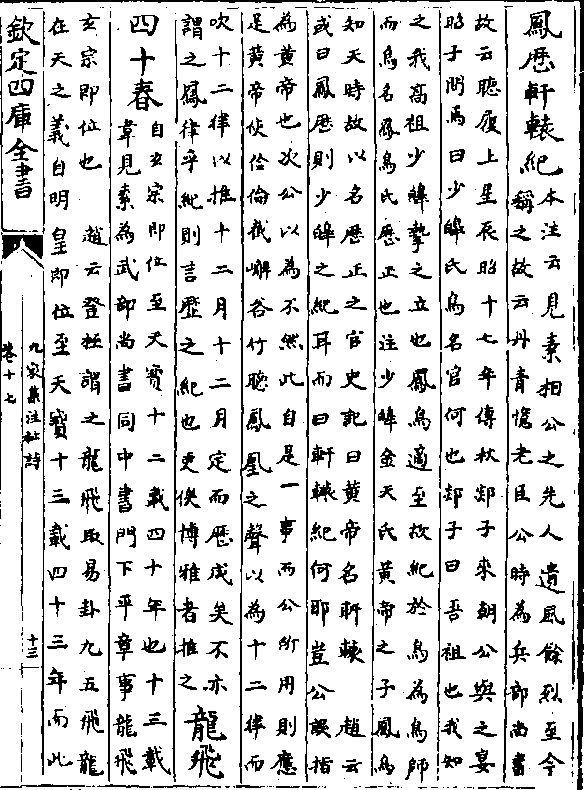 鳳歴軒轅紀
本注云見素相公之先人遺風餘烈至今
稱之故云丹青憶老臣公時為兵部尚書
故云聽履上星辰昭十七年傳秋郯子來朝公與之宴
昭子問焉曰少皥氏鳥名官何也郯子曰吾祖也我知
之我高祖少皥摯之立也鳳鳥適至故紀於鳥為鳥師
而鳥名鳳鳥氏歴正也注少皥金天氏黄帝之子鳳鳥
知天時故以名歴正之官史記曰黄帝名軒轅 趙云
或曰鳳歴則少皥之紀耳而曰軒轅紀何耶豈公誤指
為黄帝也次公以為不然此自是一事而公所用則應
是黄帝使伶倫截嶰谷竹聽鳳凰之聲以為十二律而
吹十二律以推十二月十二月定而歴成矣不亦
謂之鳳律乎紀則言歴之紀也更俟博雅者推之
龍飛
四十春
自玄宗即位至天寳十二載四十年也十三載
韋見素為武部尚書同中書門下平章事龍飛
玄宗即位也 趙云登極謂之龍飛取易卦九五飛龍
在天之義自明皇即位至天寳十三載四十三年而此
欽定四庫全書
九家集注杜詩
卷十七
十三